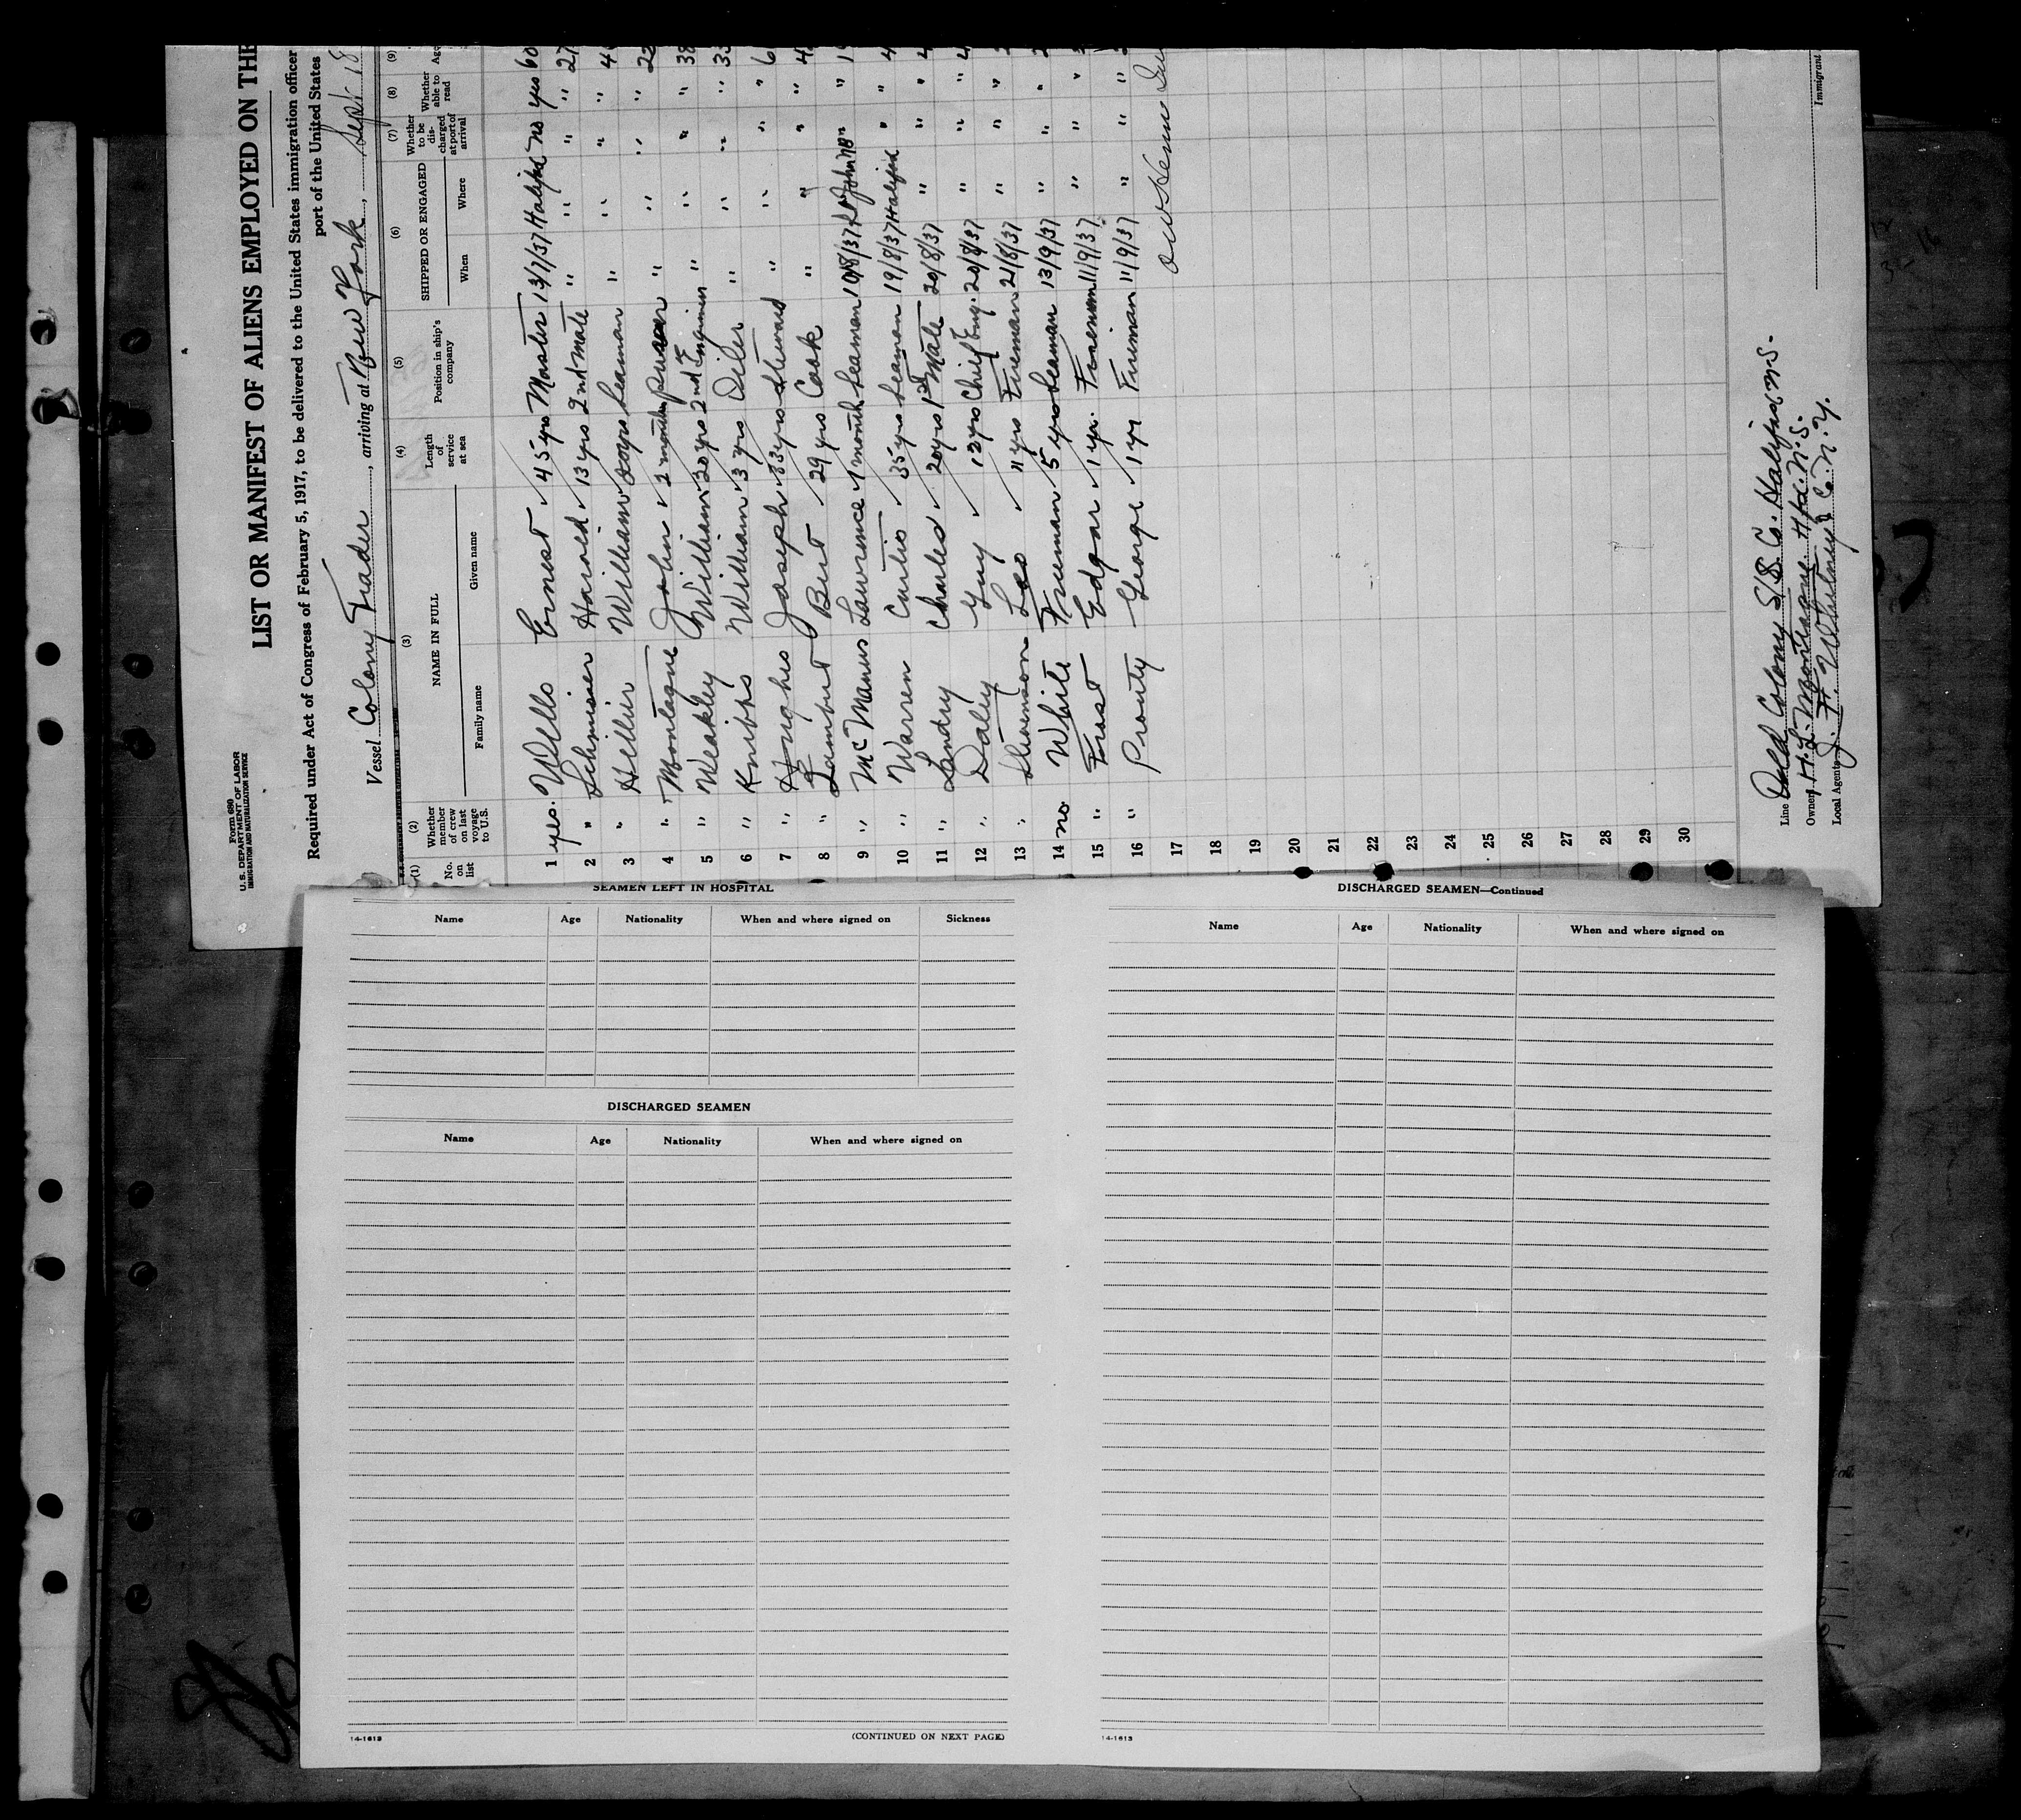 Form 680
U. S. DEPARTMENT OF LABOR
IMMIGRATION AND NATURALIZATION SERVICE
LIST OR MANIFEST OF ALIENS EMPLOYED ON THE
Required under Act of Congress of February 5, 1917, to be delivered to the United States immigration officer
port of the United States
Vessel Colony Trader, arriving at New York, Sept 18
(1) (2) (3) (4) (5) (6) (7) (8) (9)
No. on list Whether member of crew on last voyage to U.S. NAME IN FULL Family name Given name Length of service at sea Position in ship's company SHIPPED OR ENGAGED When Where Whether to be discharged at port of arrival Whether able to read
1 yes. Wells Ernest 45 yrs Master 13/7/37 Halifax no yes 60
2 " Schmisser Harold 13 yrs 2nd mate " " " " 27
3 " Hellier William 20 yrs Seaman " " " "
4 " Montague John 2 months " " " "
5 " Weakley William 20 yrs 2nd " " " " 38
6 " Knibbs William 3 yrs Oiler " " " "
7 " Hughes Joseph 33 yrs Steward " " " "
8 " Lambert Bert 29 yrs Cook " " " "
9 " McManus Lawrence 1 month Seaman 10/8/37 St John NB " "
10 " Warren Curtis 35 yrs Seaman 19/8/37 Halifax " "
11 " Landry Charles 20 yrs 1st Mate 20/8/37 " " "
12 " Daley Guy 12 yrs Chief Eng. 20/8/37 " " "
13 " Stevenson Leo 4 yrs Fireman 21/8/37 " " "
14 no White Freeman 5 yrs Seaman 13/9/37 " " "
15 " Frost Edgar 1 yr. Fireman 11/9/37 " " "
16 " Prouty George 1 yr Fireman 11/9/37 " " "
17
18
19
20
21
22
23
24
25
26
27
28
29
30
Line Old Colony S/S. Co. Halifax, N.S.
Owners H. L. Montague. Hfx. N.S.
Local Agents J. F. Whitney & Co. N.Y.
Immigrant
SEAMEN LEFT IN HOSPITAL
Name Age Nationality When and where signed on Sickness
DISCHARGED SEAMEN
Name Age Nationality When and where signed on
14-1613
(CONTINUED ON NEXT PAGE)
DISCHARGED SEAMEN—Continued
Name Age Nationality When and where signed on
14-1613